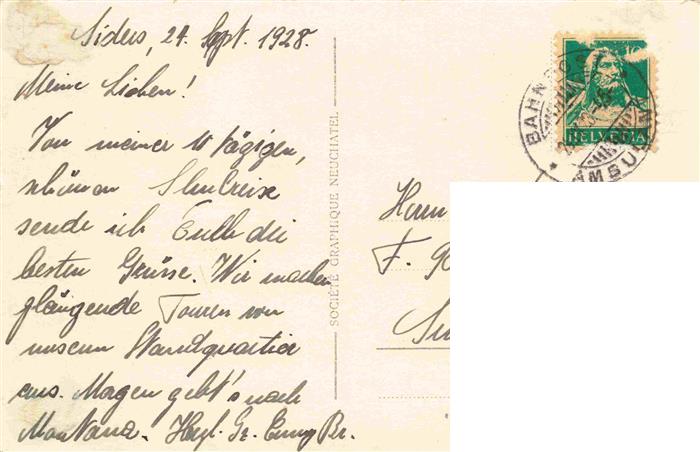 Siders, 24. Sept. 1928.
Meine Lieben!
Von meiner 10 tägigen,
schönen Schulreise
sende ich Euch die
besten Grüsse. Wir machen
glänzende Touren von
unserm Standquartier
aus. Morgen geht's nach
Montana. Hrzl. Gr. Euer Br.
SOCIÉTÉ GRAPHIQUE NEUCHATEL
BAHNPOST
AMBULANT
HELVETIA
Herrn
F.